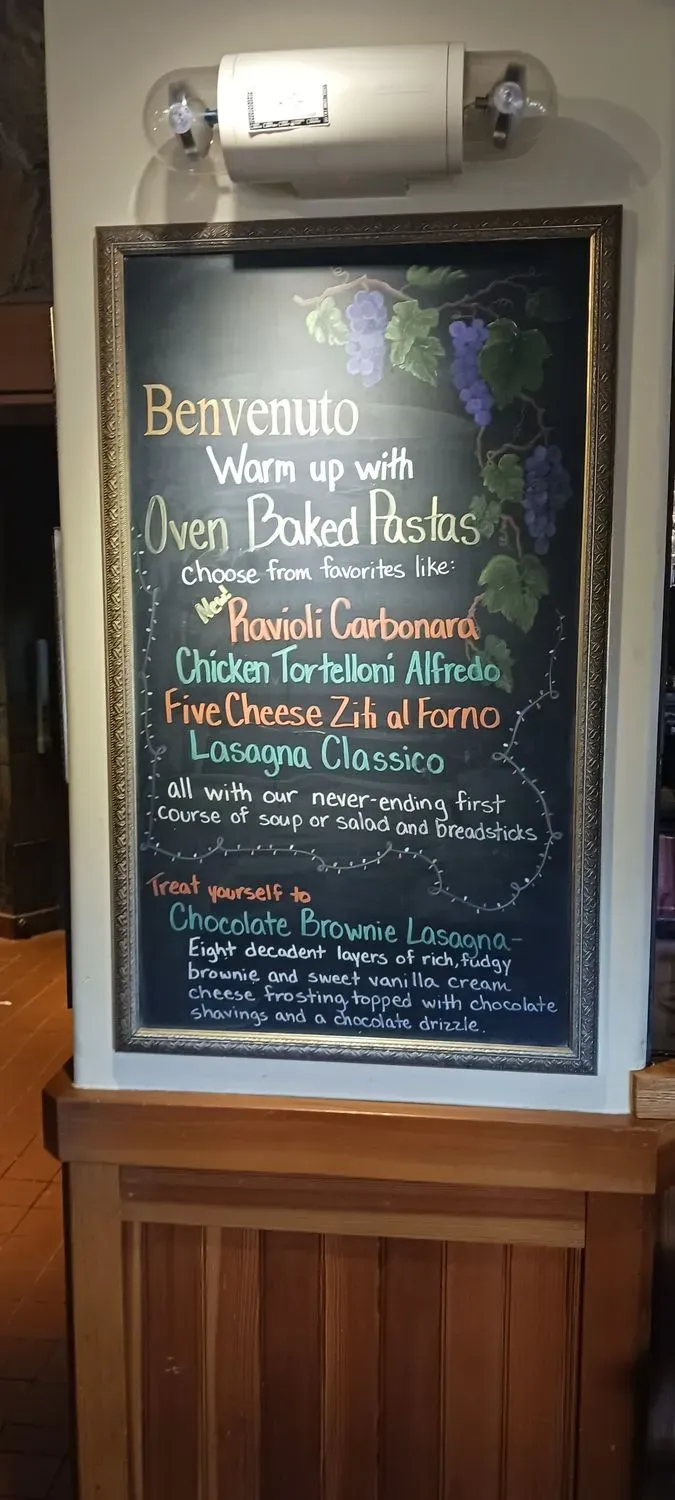 Benvenuto
Warm up with
Oven Baked Pastas
choose from favorites like:
New
Ravioli Carbonara
Chicken Tortelloni Alfredo
Five Cheese Ziti al Forno
Lasagna Classico
all with our never-ending first
course of soup or salad and breadsticks
Treat yourself to
Chocolate Brownie Lasagna-
Eight decadent layers of rich, fudgy
brownie and sweet vanilla cream
cheese frosting topped with chocolate
shavings and a chocolate drizzle.